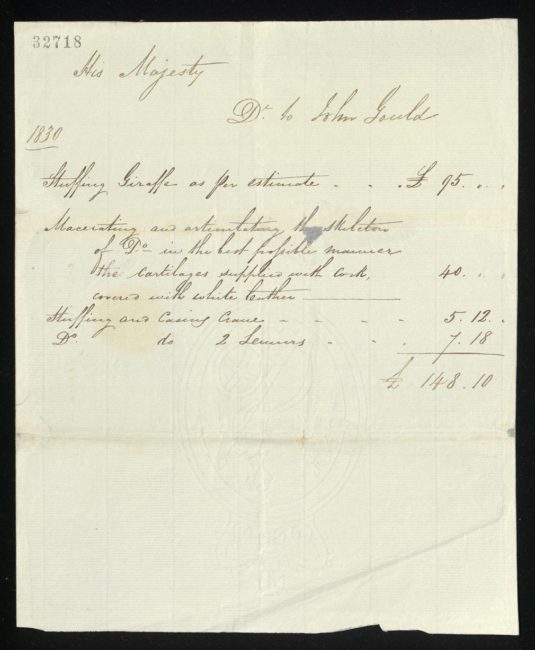 32718
His Majesty
Dr. to John Gould
1830
Stuffing Giraffe as per estimate - - . £ 95 . . .
Macerating and articulating the skeleton
of Do. in the best possible manner
the cartilages supplied with cork, 40 . . .
covered with white leather
Stuffing and Casing Crane - - - - 5 . 12 . .
Do. do 2 Lemurs - - - 7 . 18
£ 148 . 10